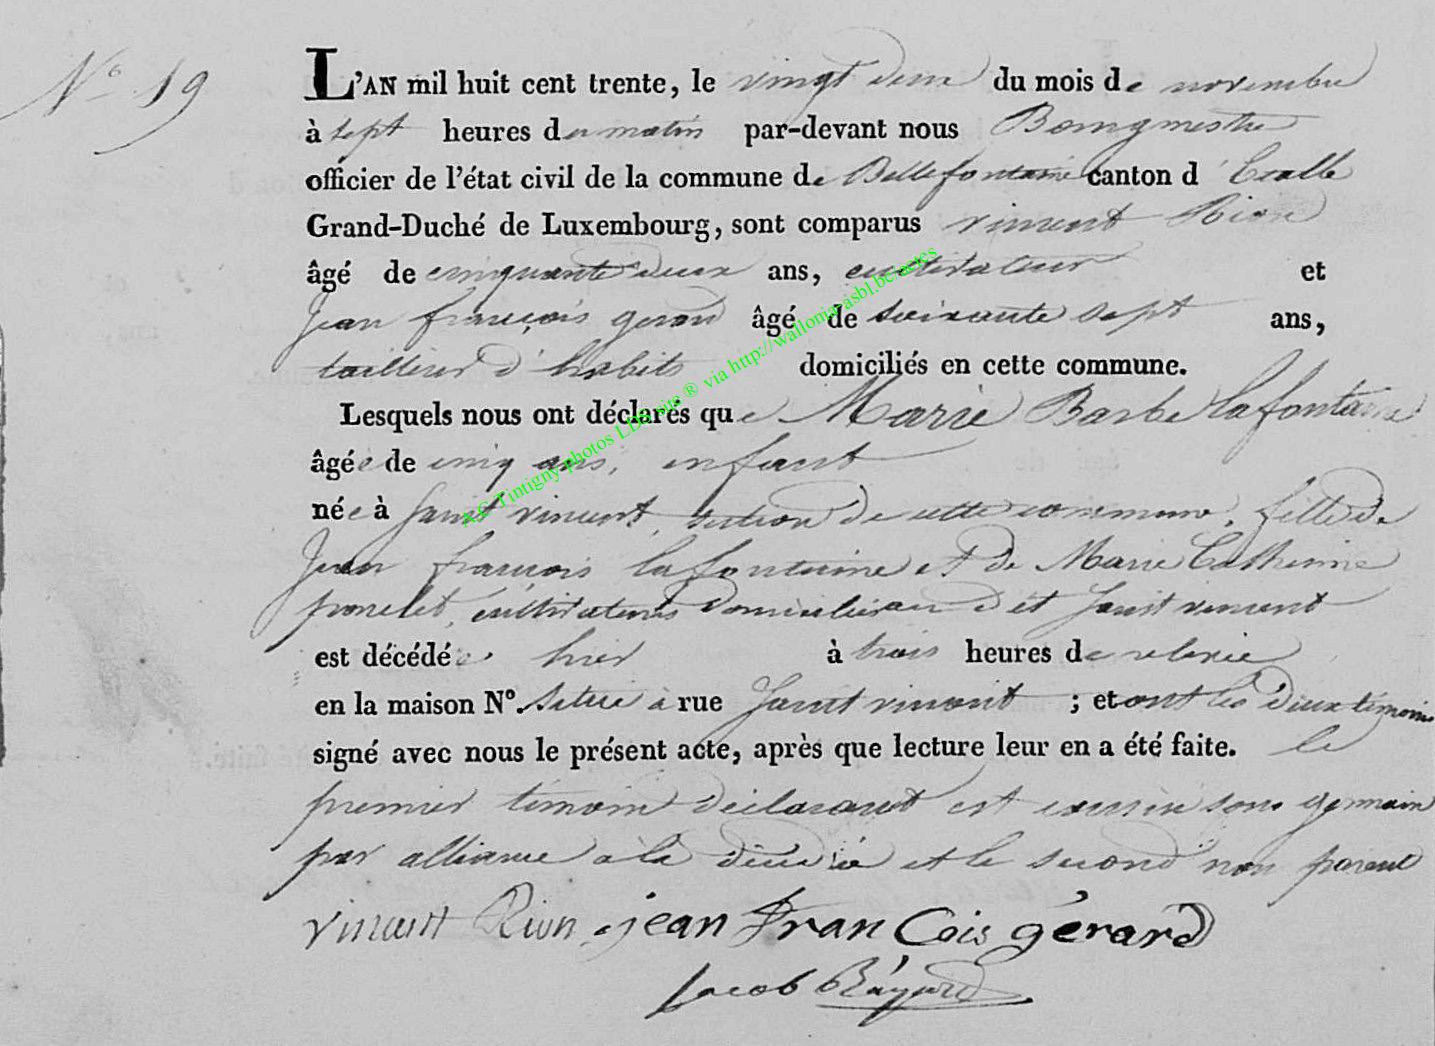 N° 19
L'AN mil huit cent trente, le vingt deux du mois de novembre
à sept heures du matin par-devant nous Bourgmestre
officier de l'état civil de la commune de Bellefontaine canton d'Etalle
Grand-Duché de Luxembourg, sont comparus vincent Rion
âgé de cinquante deux ans, cultivateur et
Jean françois gerard âgé de soixante sept ans,
tailleur d'habits domiciliés en cette commune.
Lesquels nous ont déclarés que Marie Barbe lafontaine
âgée de cinq ans, enfant
née à Saint vincent, section de cette commune, fille de
Jean françois lafontaine et de Marie Catherine
poncelet, cultivateurs domiciliés au dit Saint vincent
est décédée hier à trois heures de relevée
en la maison N°. située à rue Saint vincent ; et ont les deux témoins
signé avec nous le présent acte, après que lecture leur en a été faite. le
premier témoin déclarant est cousin sous germain
par alliance à la décédée et le second non parent
vincent Rion jean FranCois gérard
Jacob
A.G Tintigny photos LDS site ® via http://wallonia-asbl.be/actes